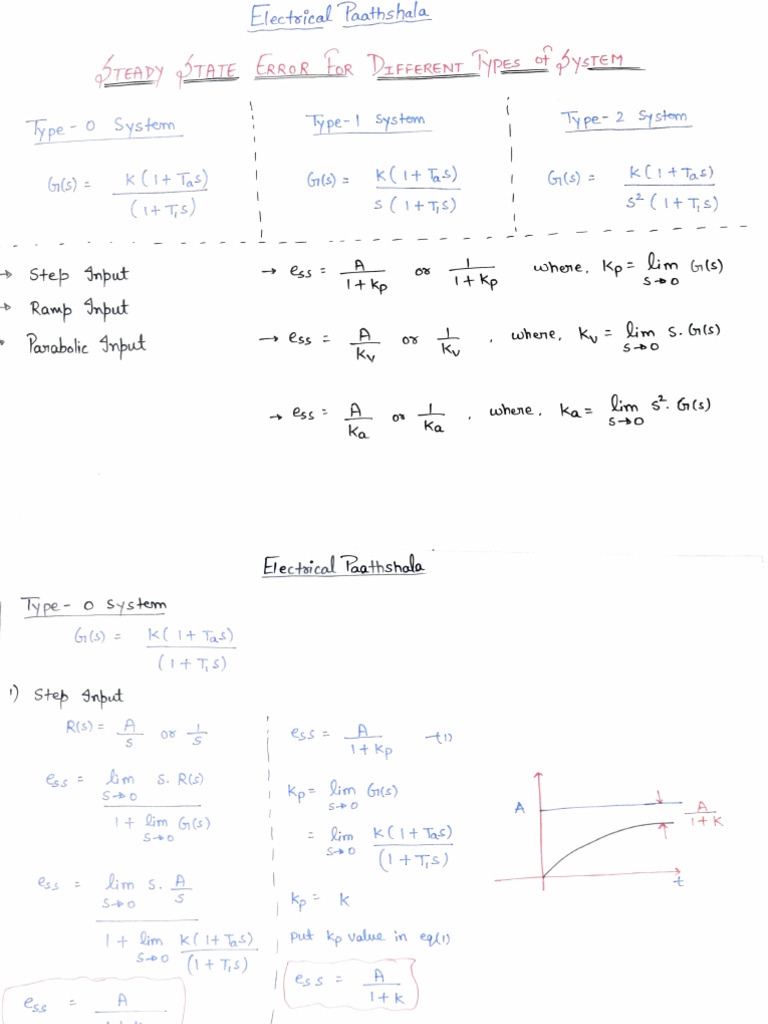 Electrical Paathshala
STEADY STATE ERROR FOR DIFFERENT TYPES of SYSTEM
Type - 0 System
G(s) = K(1+Tas) / (1+T1s)
Type-1 System
G(s) = K(1+Tas) / s(1+T1s)
Type-2 System
G(s) = K(1+Tas) / s²(1+T1s)
→ Step Input
→ Ramp Input
Parabolic Input
→ ess = A / 1+kp or 1 / 1+kp where, kp = lim s→0 G(s)
→ ess = A / kv or 1 / kv , where, kv = lim s→0 s. G(s)
→ ess = A / ka or 1 / ka , where, ka = lim s→0 s². G(s)
Electrical Paathshala
Type - 0 System
G(s) = K(1+Tas) / (1+T1s)
1) Step Input
R(s) = A / s or 1 / s
ess = lim s→0 s. R(s) / 1 + lim s→0 G(s)
ess = lim s→0 s. A / s / 1 + lim s→0 K(1+Tas) / (1+T1s)
ess = A
ess = A / 1+kp —(1)
kp = lim s→0 G(s)
= lim s→0 K(1+Tas) / (1+T1s)
kp = k
put kp value in eq(1)
ess = A / 1+k
A
A / 1+k
t